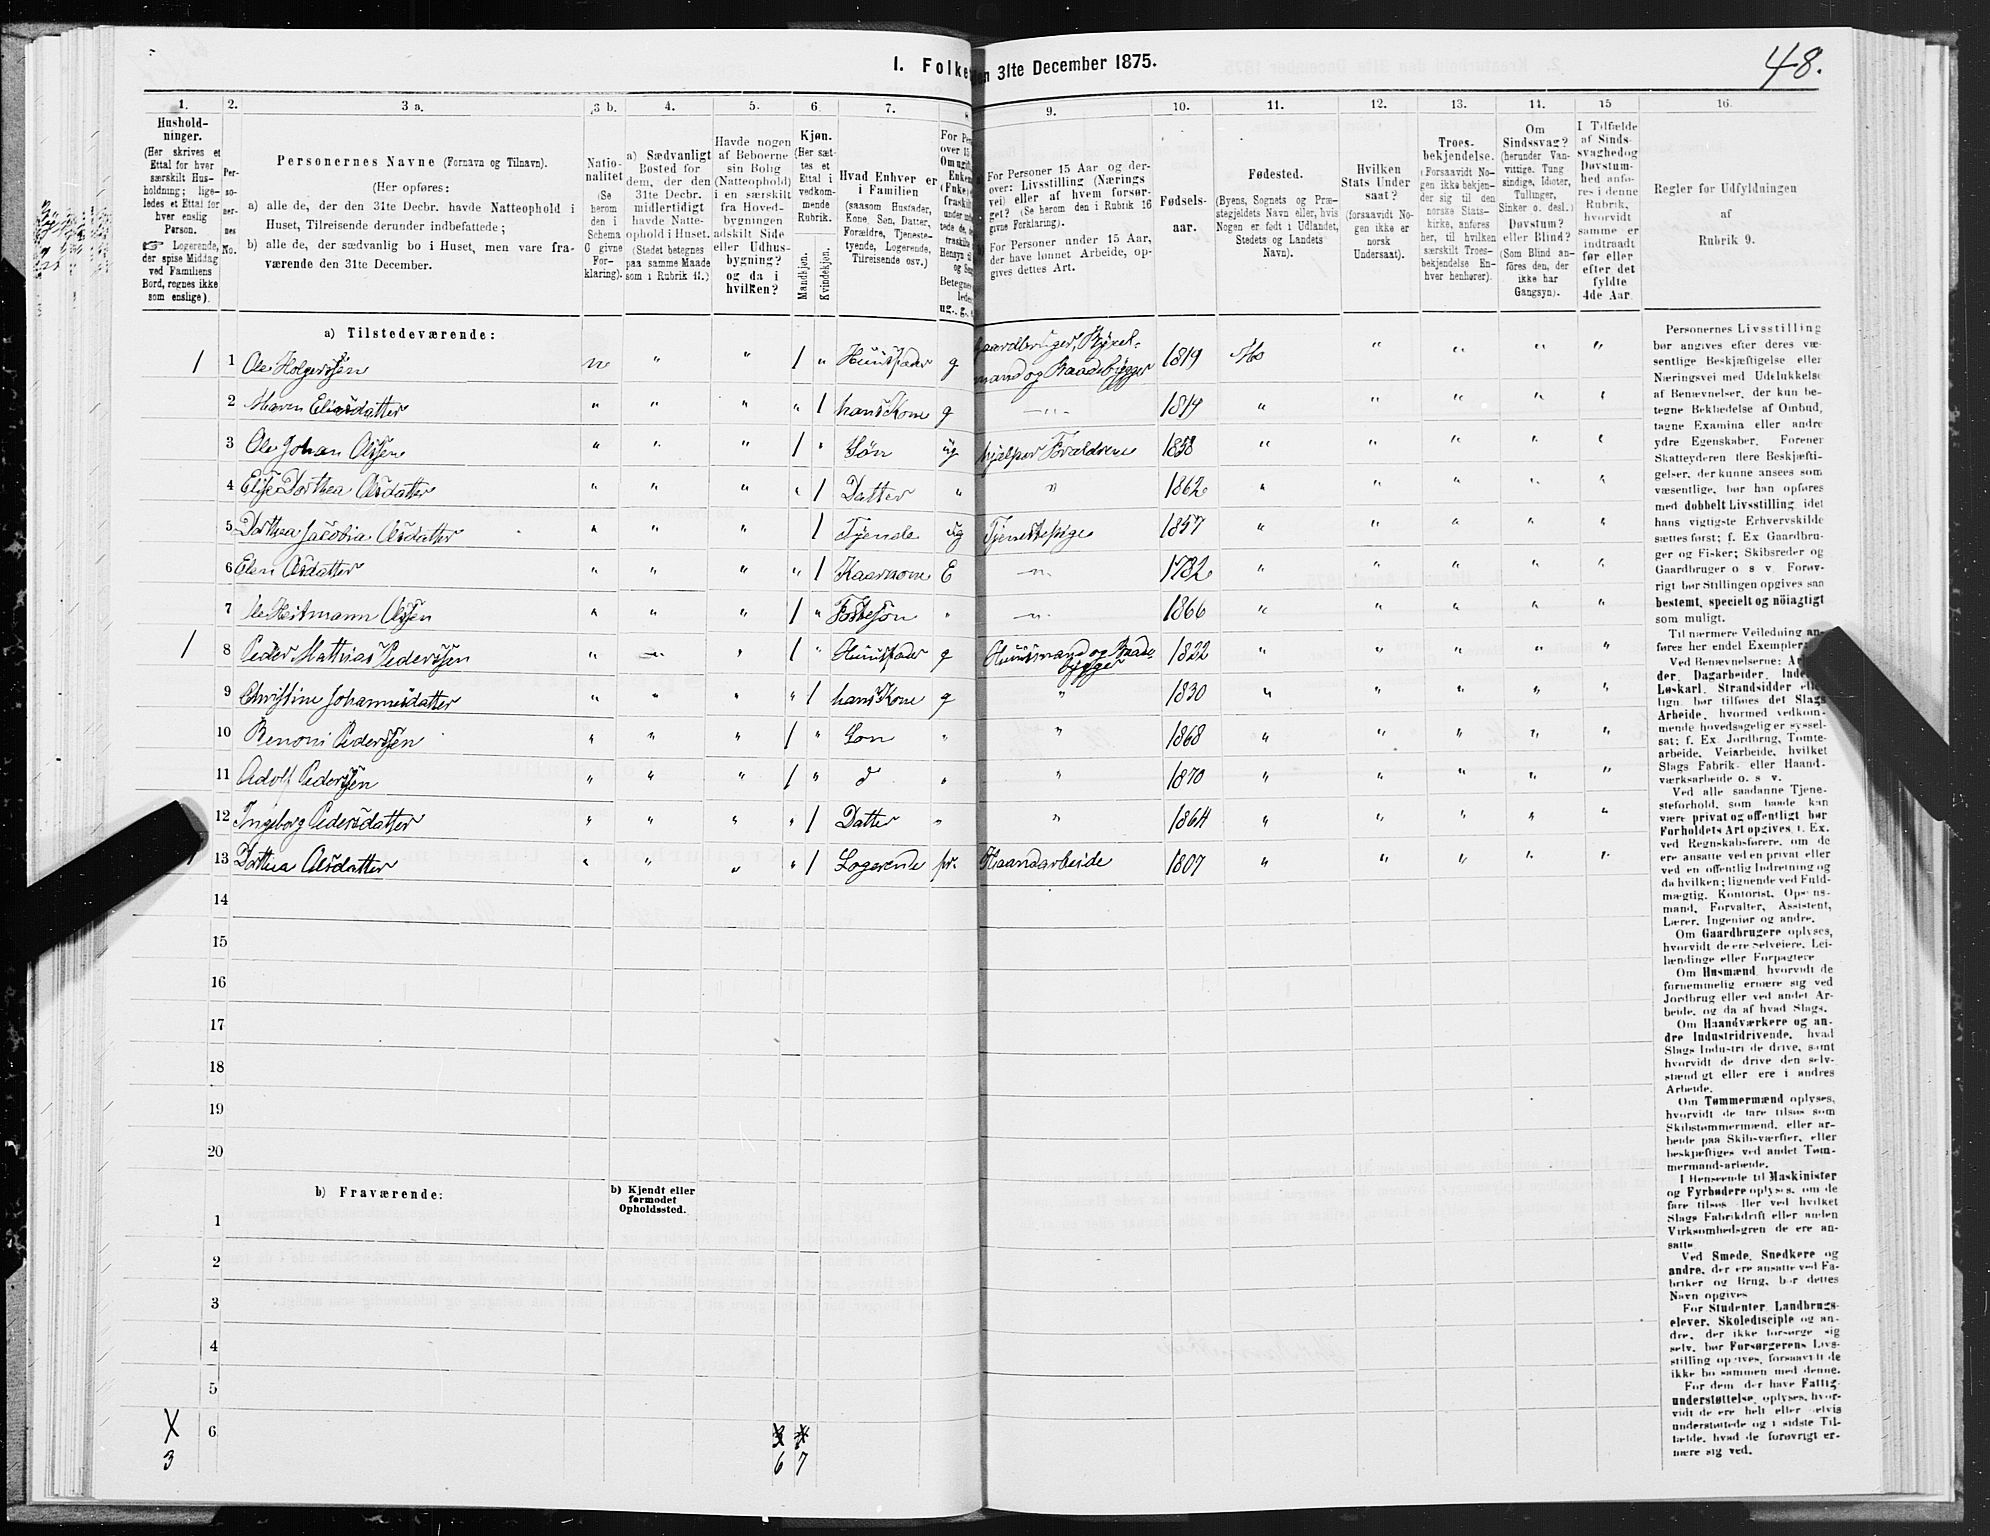 1. Folke en 31te December 1875.
48.
1. 2. 3 a. 3 b. 4. 5. 6. 7. 8 9. 10. 11. 12. 13. 14. 15 16.
Hushold-
ninger.
(Her skrives et
Ettal for hver
særskilt Hus-
holdning; lige-
ledes et Ettal for
hver enslig
Person.
☞ Logerende,
der spise Middag
ved Familiens
Bord, regnes ikke
som enslige).
Per-
so-
ner-
nes
No.
Personernes Navne (Fornavn og Tilnavn).
(Her opføres:
a) alle de, der den 31te Decbr. havde Natteophold i
Huset, Tilreisende derunder indbefattede;
b) alle de, der sædvanlig bo i Huset, men vare fra-
værende den 31te December.
Natio-
nalitet
(Se
herom
den i
Schema
C givne
For-
klaring).
a) Sædvanligt
Bosted for
dem, der den
31te Decbr.
midlertidigt
havde Natte-
ophold i Huset.
(Stedet betegnes
paa samme Maade
som i Rubrik 11.)
Havde nogen
af Beboerne
sin Bolig
(Natteophold)
i en særskilt
fra Hoved-
bygningen
adskilt Side
eller Udhus-
bygning?
og da i
hvilken?
Kjøn.
(Her sæt-
tes et
Ettal i
vedkom-
mende
Rubrik.
Mandkjøn.
Kvindekjøn.
Hvad Enhver er
i Familien
(saasom Husfader,
Kone, Søn, Datter,
Forældre, Tjeneste-
tyende, Logerende,
Tilreisende osv.)
For Per
over 15
Om ugift
Enken
(Fnke)
fraskilt
For Personer 15 Aar og der-
over: Livsstilling (Nærings
vei) eller af hvem forsør-
get? (Se herom den i Rubrik 16
givne Forklaring).
For Personer under 15 Aar,
der have lønnet Arbeide, op-
gives dettes Art.
Fødsels-
aar.
Fødested.
(Byens, Sognets og Præ-
stegjeldets Navn eller, hvis
Nogen er født i Udlandet,
Stedets og Landets
Navn).
Hvilken
Stats Under
saat?
(forsaavidt No-
gen ikke er
norsk
Undersaat).
Troes-
bekjendelse.
(Forsaavidt No-
gen ikke bekjen-
der sig til den
norske Stats-
kirke, anføres
her, til hvilken
særskilt Troes-
bekjendelse En-
hver henhører).
Om
Sindssvag?
(herunder Van-
vittige, Tung
sindige, Idioter,
Tullinger,
Sinker o. desl.)
Døvstum?
eller Blind?
(Som Blind an-
føres den, der
ikke har
Gangsyn).
I Tilfælde
af Sinds-
svaghed og
Døvstum-
hed anfø-
res i denne
Rubrik,
hvorvidt
samme er
indtraadt
før eller
efter det
fyldte
4de Aar.
Regler for Udfyldningen
af
Rubrik 9.
a) Tilstedeværende:
1 1 Ole Holgerssen n " " 1 " Huusfader g Gaardbruger, Skyds-
mand og Baadebygger 1819 Mo " " " "
2 Maren Eliasdatter " " " " 1 hans Kone g — " — 1819 " " " " "
3 Ole Johan Olssen " " " 1 " Søn ug hjælper Forældrene 1858 " " " " "
4 Elise Dorthea Olsdatter " " " " 1 Datter " " 1862 " " " " "
5 Dorthea Jacobia Olsdatter " " " 1 Tjende ug Tjenestepige 1857 " " " " "
6 Elen Olsdatter " " " " 1 Kaarkone E — " — 1782 " " " " "
7 Ole Heitmann Olssen " " " 1 " Fostesøn " — " — 1866 " " " " "
1 8 Peder Mathias Pederssen " " " 1 " Huusfader g Huusmand og Baade-
bygger 1822 " " " " "
9 Christine Johannesdatter " " " " 1 hans Kone g " 1830 " " " " "
10 Benoni Pederssen " " " 1 " Son " " 1868 " " " " "
11 Adolf Pederssen " " " 1 " d " " 1870 " " " " "
12 Ingeborg Pedersdatter " " " " 1 Datter " " 1864 " " " " "
13 Dorthea Olsdatter " " " " 1 Logerende fr. Haandarbeide 1807 " " " " "
14
15
16
17
18
19
20
b) Fraværende:
b) Kjendt eller
formodet
Opholdssted.
1
2
3
4
5
6
3 6 7
Personernes Livsstilling
bør angives efter deres væ-
sentlige Beskjæftigelse eller
Næringsvei med Udelukkelse
af Benævnelser, der kun be-
tegne Beklædelse af Ombud,
tagne Examina eller andre
ydre Egenskaber. Forener
Skatteyderen flere Beskjæfti-
gelser, der kunne ansees som
væsentlige, bør han opføres
med dobbelt Livsstilling, idet
hans vigtigste Erhvervskilde
sættes først; f. Ex Gaardbru-
ger og Fisker; Skibsreder og
Gaardbruger o s v. Forøv-
rigt bør Stillingen opgives saa
bestemt, specielt og nöiagtigt
som muligt.
Til nærmere Veiledning an-
føres her endel Exempler:
Ved Benævnelserne: Ar
der, Dagarbeider, Inder
Løskarl, Strandsidder ell
lign. bør tilføres det Slags
Arbeide, hvormed vedkom-
mende hovedsagelig er syssel-
sat; f. Ex. Jordbrug, Tomte-
arbeide, Veiarbeide, hvilket
Slags Fabrik- eller Haand-
værksarbeide o. s. v.
Ved alle saadanne Tjene-
steforhold, som baade kan
være privat og offentligt, bør
Forholdets Art opgives, t. Ex.
ved Regnskabsførere, om de
ere ansatte ved en privat eller
ved en offentlig Indretning og
da hvilken; lignende ved Fuld-
mægtig, Kontorist, Opsyns-
mand, Forvalter, Assistent,
Lærer, Ingeniør og andre.
Om Gaardbrugere oplyses,
hvorvidt de ere Selveiere, Lei-
lændinge eller Forpagtere
Om Husmænd, hvorvidt de
fornemmelig ernære sig ved
Jordbrug eller ved andet Ar-
beide, og da af hvad Slags.
Om Haandværkere og an-
dre Industridrivende, hvad
Slags Industri de drive, samt
hvorvidt de drive den selv-
stændigt eller ere i andres
Arbeide.
Om Tømmermænd oplyses,
hvorvidt de fare tilsøs som
Skibstømmermænd, eller ar-
beide paa Skibsværfter, eller
beskjæftiges ved andet Tøm-
mermand-arbeide.
I Henseende til Maskinister
og Fyrbødere oplyses, om de
fare tilsøs eller ved hvilket
Slags Fabrikdrift eller anden
Virksomhedsgren de ere an-
satte
Ved Smede, Snedkere og
andre, der ere ansatte ved Fa-
briker og Brug, bør dettes
Navn opgives
For Studenter, Landbrugs-
elever, Skoledisciple og an-
dre, der ikke forsørge sig
selv, bør Forsørgerens Livs-
stilling opgives, forsaavidt de
ikke bo sammen med denne.
For dem, der have Fattig-
understøttelse, oplyses, hvor-
vidt de ere helt eller delvis
understøttede og i sidste Til-
fælde, hvad de forøvrigt er-
nære sig ved.